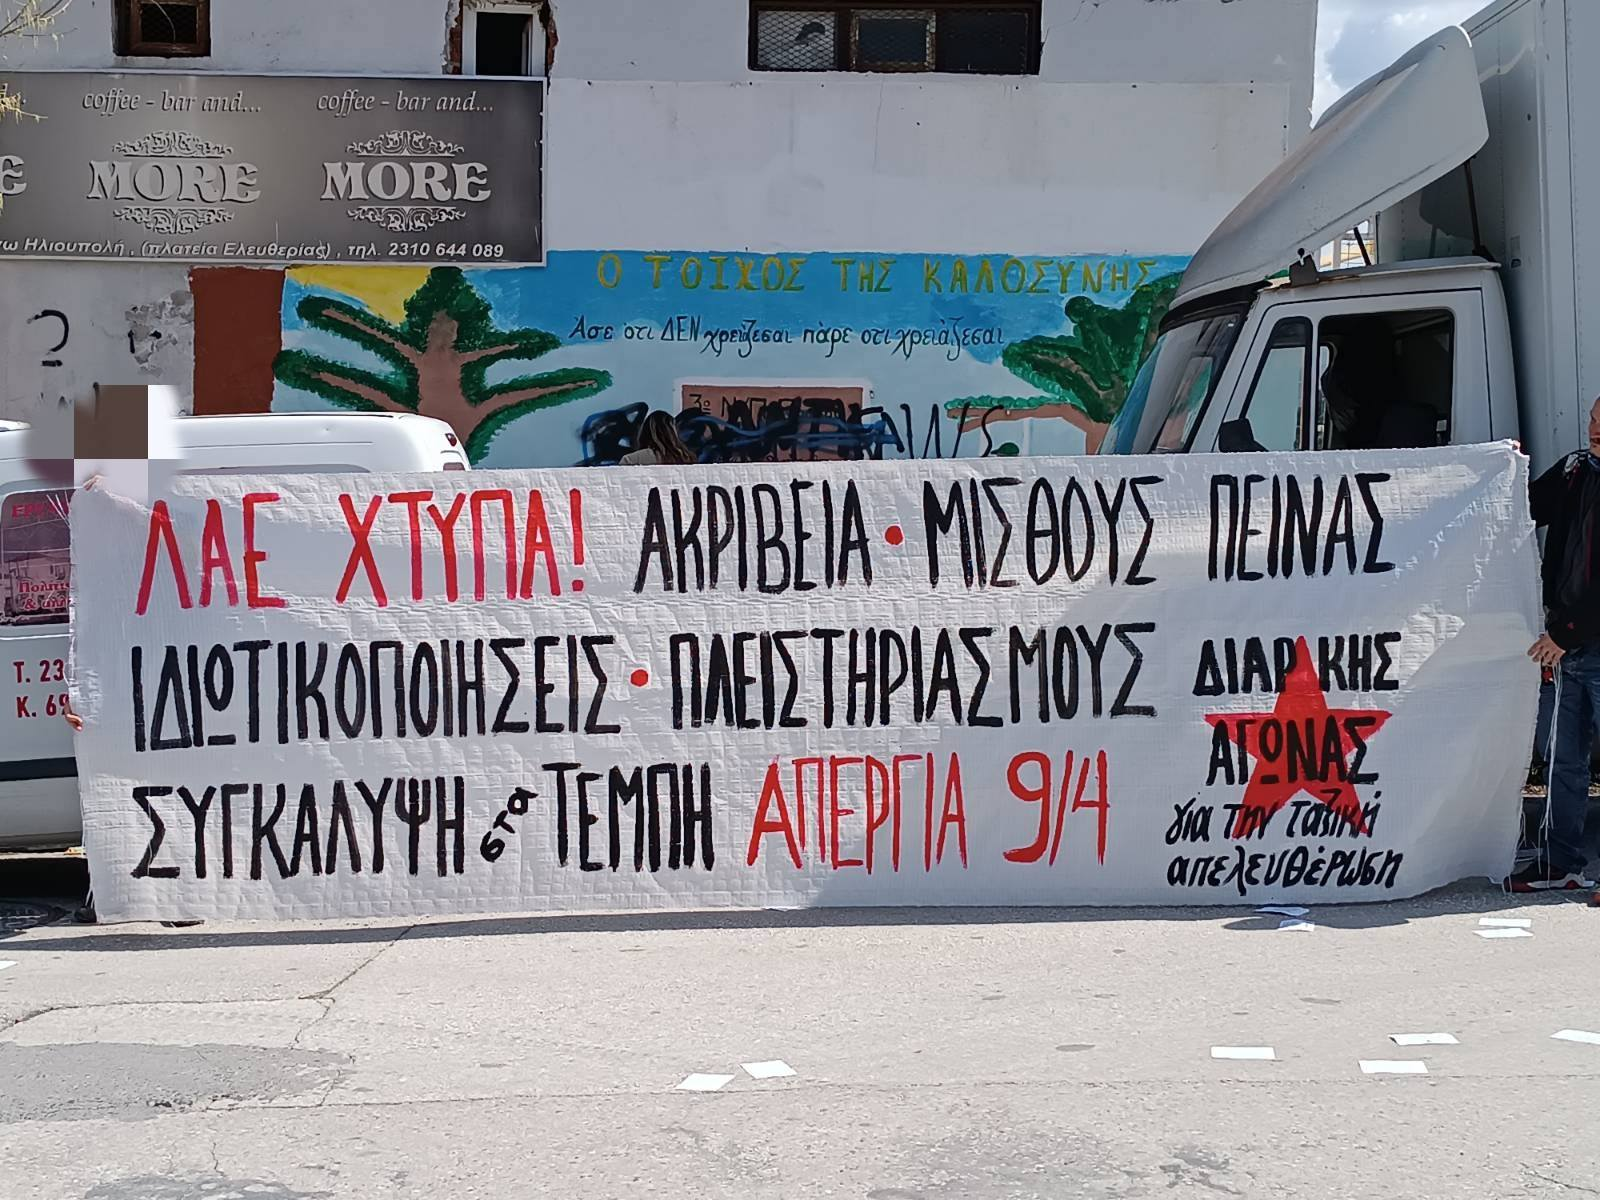 coffee - bar and... coffee - bar and...
MORE MORE
Ηλιουπολή , (πλατεία Ελευθερίας) , τηλ. 2310 644 089
Ο ΤΟΙΧΟΣ ΤΗΣ ΚΑΛΟΣΥΝΗΣ
Άσε ότι ΔΕΝ χρειάζεσαι πάρε οτι χρειάζεσαι
3ο
ΛΑΕ ΧΤΥΠΑ! ΑΚΡΙΒΕΙΑ • ΜΙΣΘΟΥΣ ΠΕΙΝΑΣ
ΙΔΙΩΤΙΚΟΠΟΙΗΣΕΙΣ • ΠΛΕΙΣΤΗΡΙΑΣΜΟΥΣ
ΣΥΓΚΑΛΥΨΗ στα ΤΕΜΠΗ ΑΠΕΡΓΙΑ 9/4
ΔΙΑΡΚΗΣ
ΑΓΩΝΑΣ
για την ταξική
απελευθέρωση
Τ. 23
Κ. 69